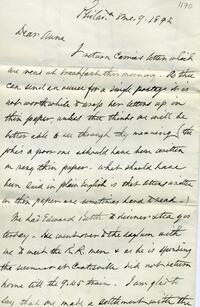 1170
Philada. Mo. 9. 1892
Dear Anna
I return Carrie's letter which
we read at breakfast this morning. As thee
can send an answer for a single postage it is
not worth while to write her letters up on
thin paper, unless that thinks we will be
better able to see through thy meaning, (the
joke is a poor one & should have been written
on very thin paper - what should have
been said in plain English is that letters written
on thin paper are sometimes hard to read.)
We had Edward Bettle to dinner - after yes
terday. He went over to the asylum with
me to meet the R.R. men & as he is spending
the summer at Coatesville did not return
home till the 9.45 train. I am glad to
say that we made a settlement with the